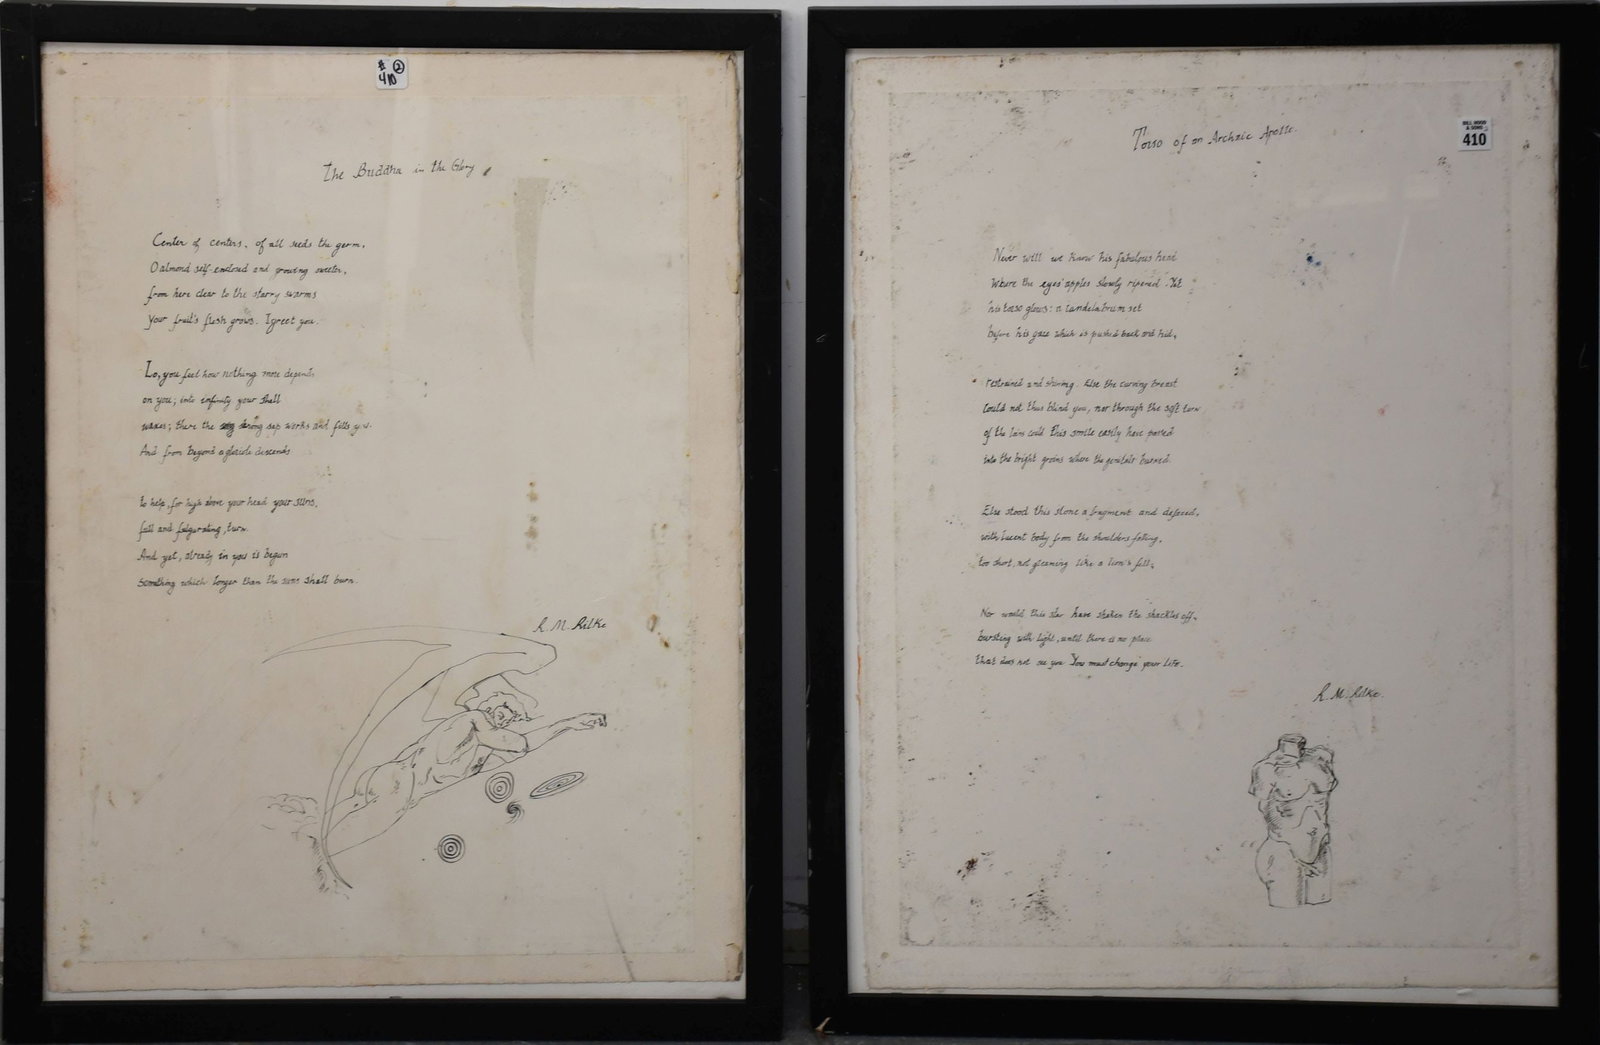 # 2
410
The Buddha in the Glory
Center of centers, of all seeds the germ,
O almond self-enclosed and growing sweeter,
from here clear to the starry swarms
your fruit's flesh grows. I greet you.
Lo, you feel how nothing more depends
on you; into infinity your shell
waxes; there the strong sap works and fills you.
And from beyond a gloriole descends
to help, for high above your head your suns,
full and fulgurating, turn.
And yet, already in you is begun
something which longer than the suns shall burn.
R. M. Rilke
Torso of an Archaic Apollo.
BILL HOOD
& SONS
410
Never will we know his fabulous head
where the eyes' apples slowly ripened. Yet
his torso glows: a candelabrum set
before his gaze which is pushed back and hid,
restrained and shining. Else the curving breast
could not thus blind you, nor through the soft turn
of the loins could this smile easily have passed
into the bright groins where the genitals burned.
Else stood this stone a fragment and defaced,
with lucent body from the shoulders falling,
too short, not gleaming like a lion's fell;
Nor would this star have shaken the shackles off,
bursting with light, until there is no place
that does not see you. You must change your life.
R. M. Rilke.